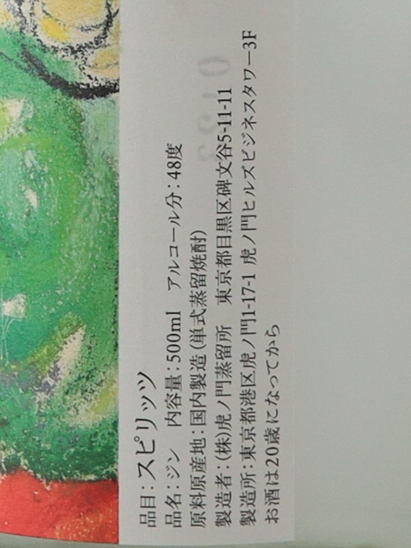 品目：スピリッツ
品名：ジン　内容量：500ml　アルコール分：48度
原料原産地：国内製造（単式蒸留焼酎）
製造者：(株)虎ノ門蒸留所　東京都目黒区碑文谷5-11-11
製造所：東京都港区虎ノ門1-17-1 虎ノ門ヒルズビジネスタワー3F
お酒は20歳になってから